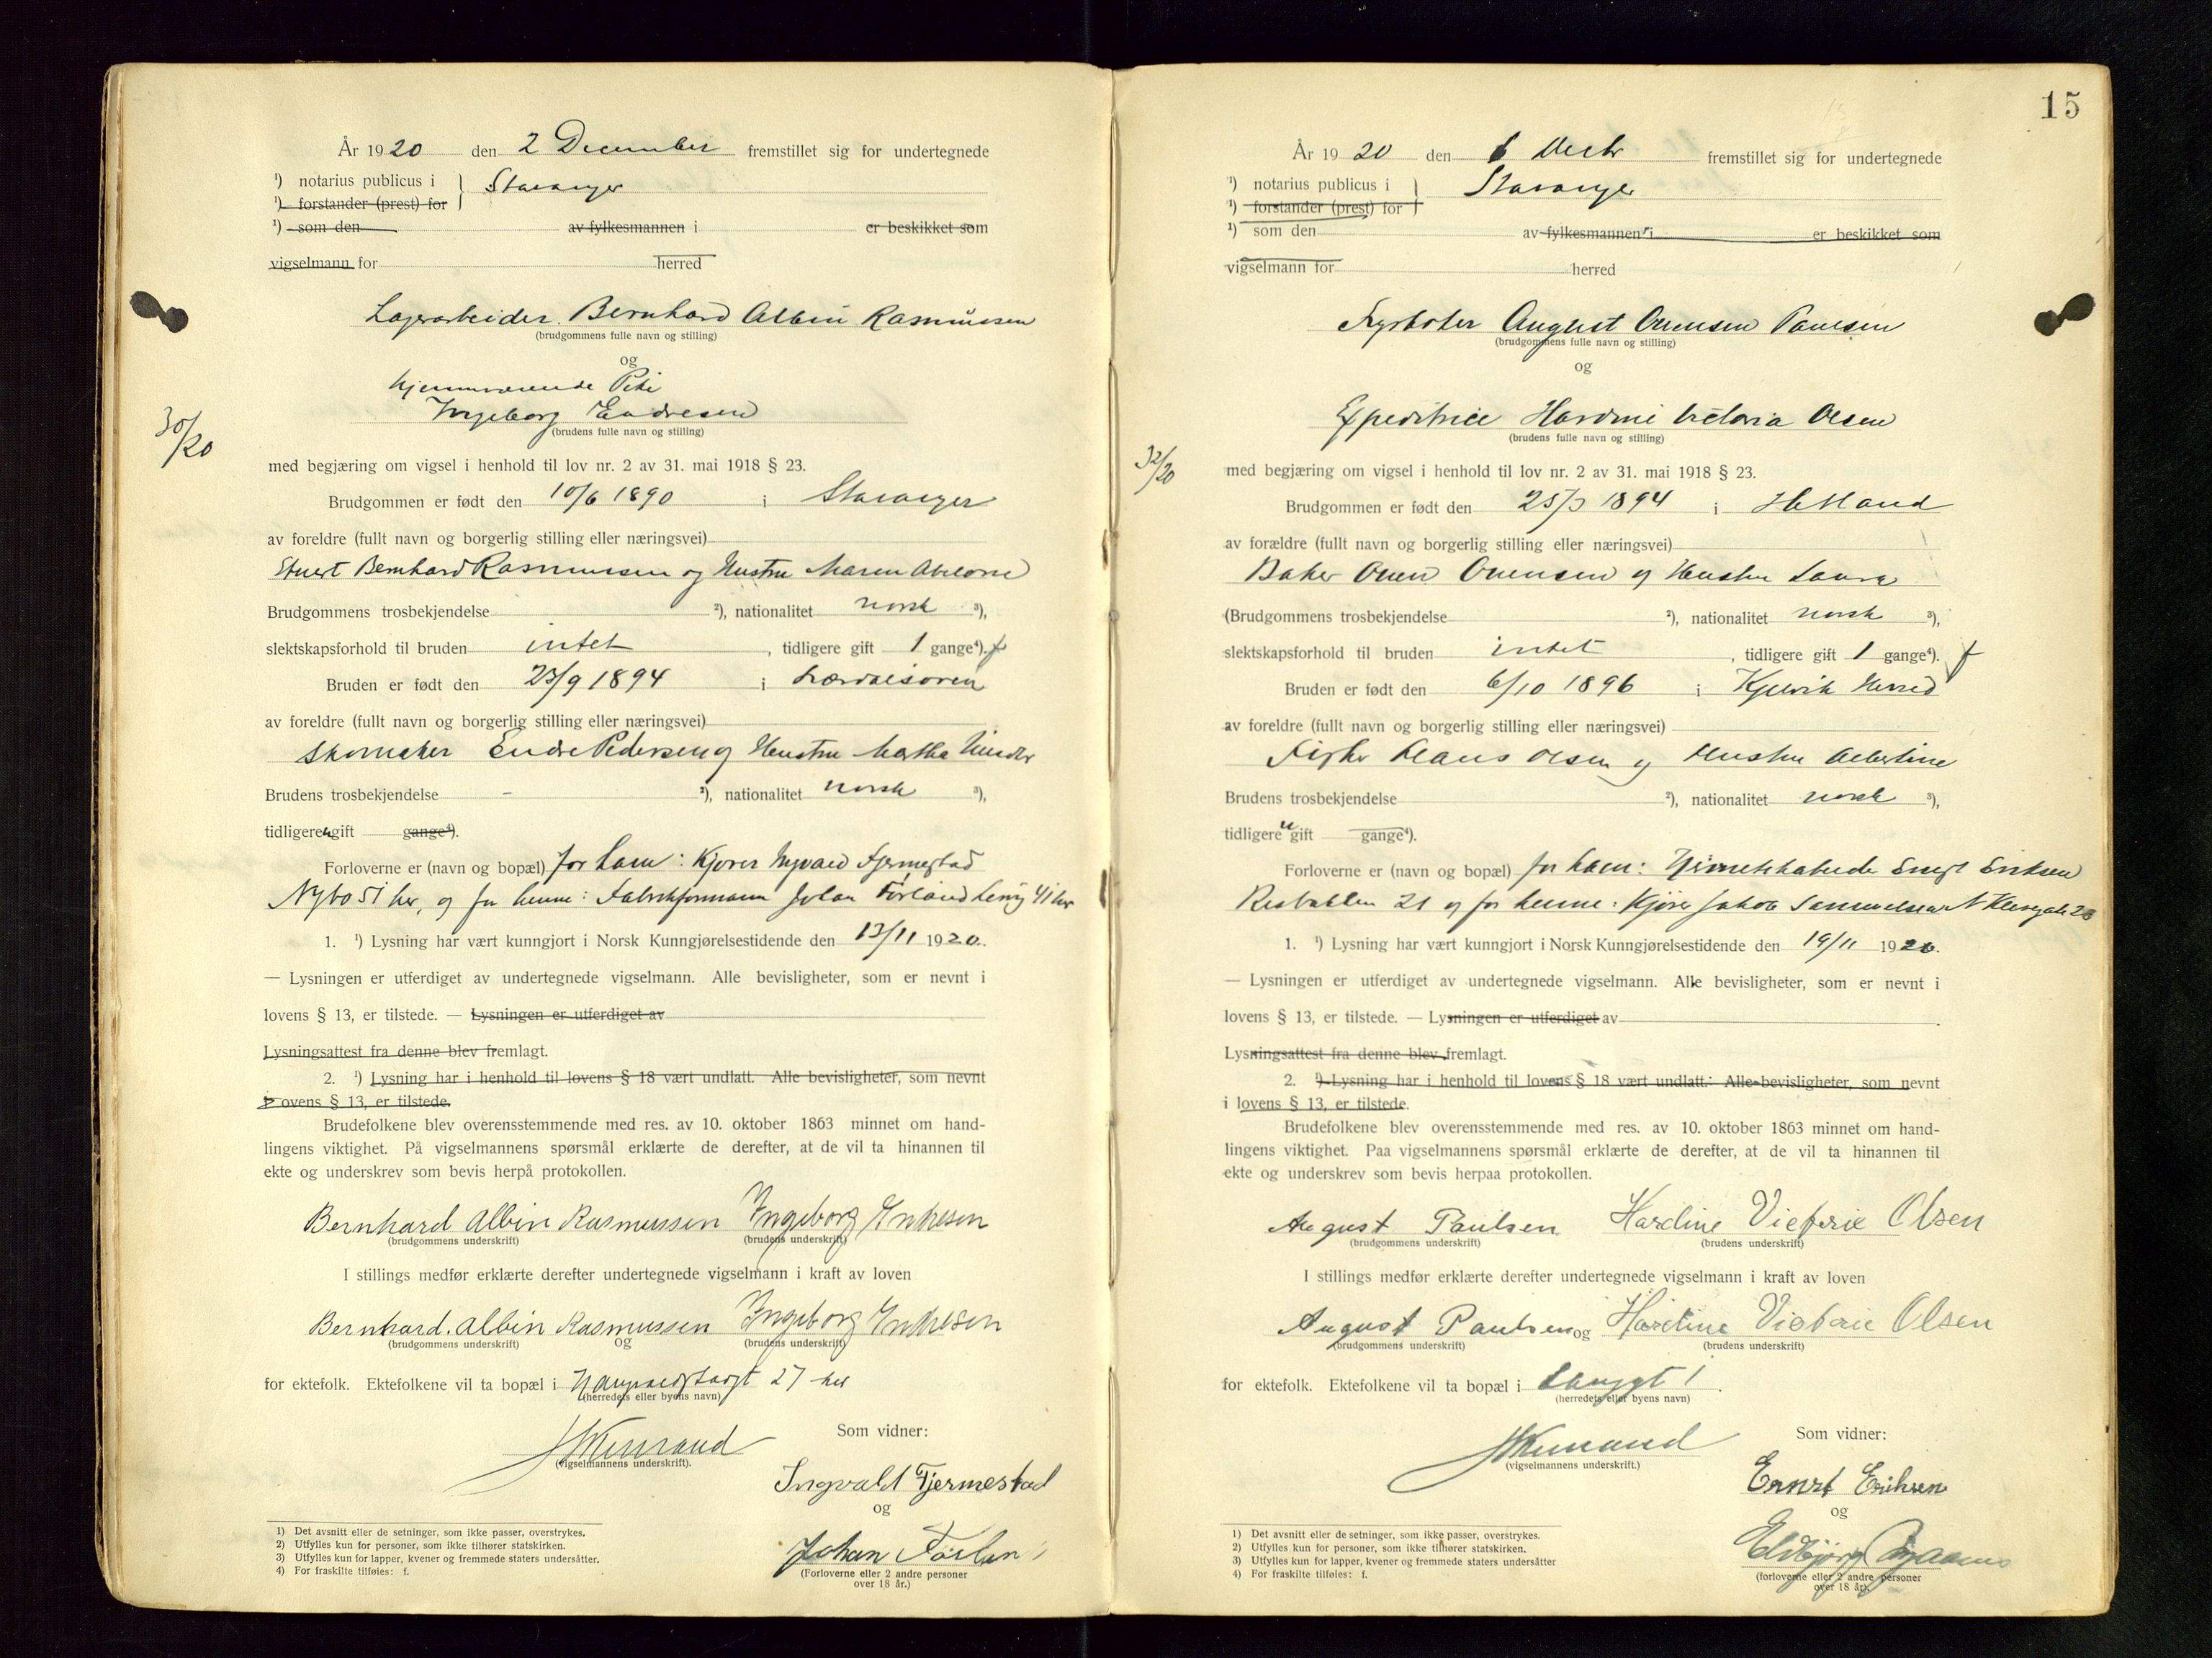 År 1920 den 2 December fremstillet sig for undertegnede
¹) notarius publicus i } Stavanger
¹) forstander (prest) for
¹) som den av fylkesmannen i er beskikket som
vigselmann for herred
Lagerarbeider Bernhard Albin Rasmussen
(brudgommens fulle navn og stilling)
og
hjemmeværende Pike
Ingeborg Endresen
(brudens fulle navn og stilling)
30/20
med begjæring om vigsel i henhold til lov nr. 2 av 31. mai 1918 § 23.
Brudgommen er født den 10/6 1890 i Stavanger
av foreldre (fullt navn og borgerlig stilling eller næringsvei)
Bernhard Rasmussen og Hustru Maren
Brudgommens trosbekjendelse ²), nationalitet norsk ³),
slektskapsforhold til bruden intet , tidligere gift 1 gange⁴). f
Bruden er født den 23/9 1894 i Lærdalsøren
av foreldre (fullt navn og borgerlig stilling eller næringsvei)
Skomaker Endre Pedersen og Hustru Martha
Brudens trosbekjendelse - ²), nationalitet norsk ³),
tidligere u gift gange⁴).
Forloverne er (navn og bopæl) for ham: Kjører Ingvald Fjermestad
Nybo 51 her, og for henne: Fabrikformann Johan Førland 41 her
1. ¹) Lysning har vært kunngjort i Norsk Kunngjørelsestidende den 13/11 1920.
— Lysningen er utferdiget av undertegnede vigselmann. Alle bevisligheter, som er nevnt i
lovens § 13, er tilstede. — Lysningen er utferdiget av
Lysningsattest fra denne blev fremlagt.
2. ¹) Lysning har i henhold til lovens § 18 vært undlatt. Alle bevisligheter, som nevnt
i lovens § 13, er tilstede.
Brudefolkene blev overensstemmende med res. av 10. oktober 1863 minnet om hand-
lingens viktighet. På vigselmannens spørsmål erklærte de derefter, at de vil ta hinannen til
ekte og underskrev som bevis herpå protokollen.
Bernhard Albin Rasmussen Ingeborg Endresen
(brudgommens underskrift) (brudens underskrift)
I stillings medfør erklærte derefter undertegnede vigselmann i kraft av loven
Bernhard. Albin Rasmussen Ingeborg Endresen
(brudgommens underskrift) og (brudens underskrift)
for ektefolk. Ektefolkene vil ta bopæl i 27 her
(herredets eller byens navn)
(vigselmannens underskrift).
Som vidner:
Ingvald Fjermestad
og
Johan Førland
(Forloverne eller 2 andre personer
over 18 år.)
1) Det avsnitt eller de setninger, som ikke passer, overstrykes.
2) Utfylles kun for personer, som ikke tilhører statskirken.
3) Utfylles kun for lapper, kvener og fremmede staters undersåtter.
4) For fraskilte tilføies: f.
15
År 1920 den 6 Decbr fremstillet sig for undertegnede
¹) notarius publicus i } Stavanger
¹) forstander (prest) for
¹) som den av fylkesmannen i er beskikket som
vigselmann for herred
Fyrbøter August Ouensen Paulsen
(brudgommens fulle navn og stilling)
og
Expeditrice Hardine Victoria Olsen
(brudens fulle navn og stilling)
32/20
med begjæring om vigsel i henhold til lov nr. 2 av 31. mai 1918 § 23.
Brudgommen er født den 25/3 1894 i Hetland
av forældre (fullt navn og borgerlig stilling eller næringsvei)
Baker Ouen Ouensen og Hustru Laura
(Brudgommens trosbekjendelse ²), nationalitet norsk ³),
slektskapsforhold til bruden intet , tidligere gift 1 gange⁴). f
Bruden er født den 6/10 1896 i Kjelvik Herred
av foreldre (fullt navn og borgerlig stilling eller næringsvei)
Fisker Klaus Olsen og Hustru Albertine
Brudens trosbekjendelse ²), nationalitet norsk ³),
tidligere u gift gange⁴).
Forloverne er (navn og bopæl) for ham: Ernst Eriksen
21 og for henne: Kjører Jakob Samuelsen N 28
1. ¹) Lysning har vært kunngjort i Norsk Kunngjørelsestidende den 19/11 1920.
— Lysningen er utferdiget av undertegnede vigselmann. Alle bevisligheter, som er nevnt i
lovens § 13, er tilstede. — Lysningen er utferdiget av
Lysningsattest fra denne blev fremlagt.
2. ¹) Lysning har i henhold til lovens § 18 vært undlatt. Alle bevisligheter, som nevnt
i lovens § 13, er tilstede.
Brudefolkene blev overensstemmende med res. av 10. oktober 1863 minnet om hand-
lingens viktighet. Paa vigselmannens spørsmål erklærte de derefter, at de vil ta hinannen til
ekte og underskrev som bevis herpaa protokollen.
August Paulsen Hardine Victorie Olsen
(brudgommens underskrift) (brudens underskrift)
I stillings medfør erklærte derefter undertegnede vigselmann i kraft av loven
August Paulsen og Hardine Victorie Olsen
(brudgommens underskrift) (brudens underskrift)
for ektefolk. Ektefolkene vil ta bopæl i 1 .
(herredets eller byens navn)
(vigselmannens underskrift.)
Som vidner:
Ernst Eriksen
og
Eldbjørg
(forloverne eller 2 andre personer
over 18 år).
1) Det avsnitt eller de setninger, som ikke passer, overstrykes.
2) Utfylles kun for personer, som ikke tilhører statskirken.
3) Utfylles kun for lapper, kvener og fremmede staters undersåtter
4) For fraskilte tilføies: f.